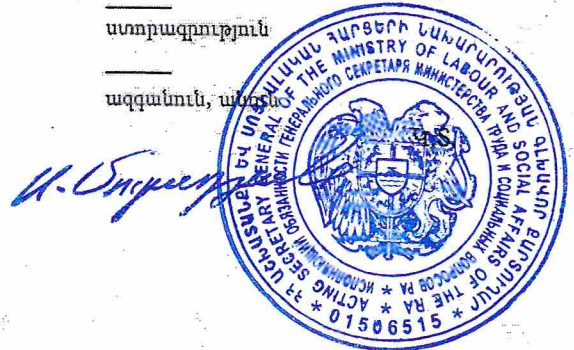 ստորագրություն
ազգանուն, անուն
Կ.Տ.
ՀՀ ԱՇԽԱՏԱՆՔԻ ԵՎ ՍՈՑԻԱԼԱԿԱՆ ՀԱՐՑԵՐԻ ՆԱԽԱՐԱՐՈՒԹՅԱՆ ԳԼԽԱՎՈՐ ՔԱՐՏՈՒՂԱՐ
* ACTING SECRETARY GENERAL OF THE MINISTRY OF LABOUR AND SOCIAL AFFAIRS OF THE RA *
ИСПОЛНЯЮЩИЙ ОБЯЗАННОСТИ ГЕНЕРАЛЬНОГО СЕКРЕТАРЯ МИНИСТЕРСТВА ТРУДА И СОЦИАЛЬНЫХ ВОПРОСОВ РА *
* 01506515 *